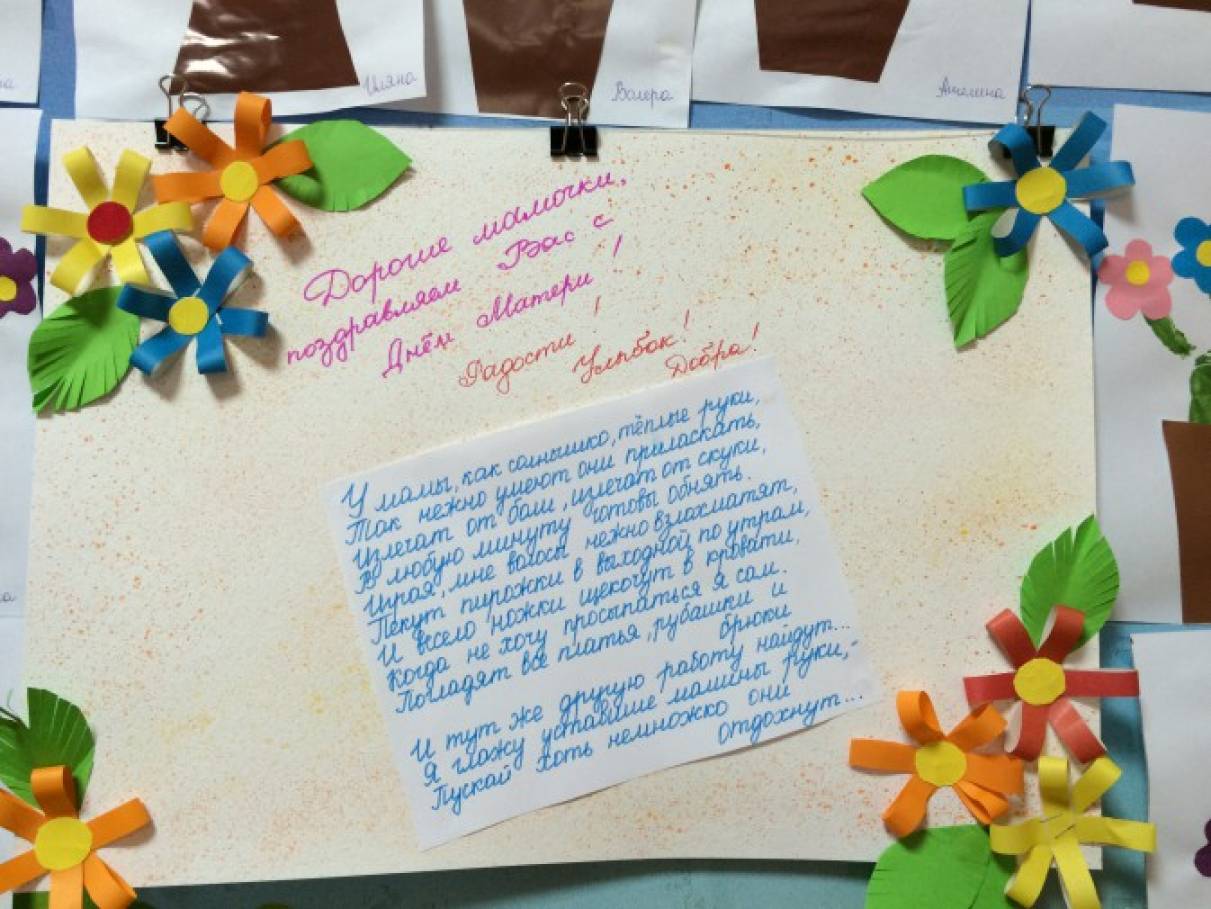 Ульяна
Валера
Ангелина
Дорогие мамочки,
поздравляем Вас с
Днём Матери!
Радости!
Улыбок!
Добра!
У мамы, как солнышко, тёплые руки,
Так нежно умеют они приласкать,
Излечат от боли, излечат от скуки,
В любую минуту готовы обнять.
Играя, мне волосы нежно взлохматят,
Пекут пирожки в выходной по утрам,
И весело ножки щекочут в кровати,
Когда не хочу просыпаться я сам.
Погладят все платья, рубашки и
брюки
И тут же другую работу найдут...
Я глажу уставшие мамины руки,-
Пускай хоть немножко они
отдохнут...